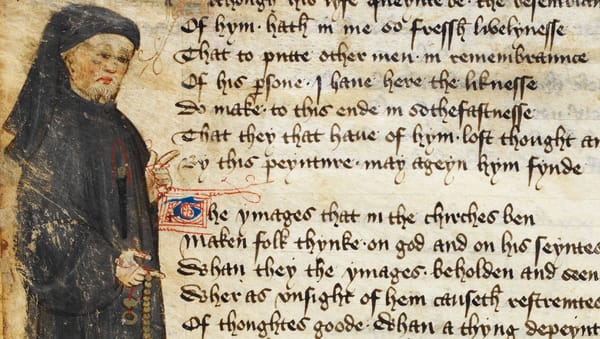 though his lyfe queynte be the resemblau
Of hym hath in me so fressh lyflynesse
That to putte other men in remembraunce
Of his persone I haue here his liknesse
Do make to this ende in sothfastnesse
That they that haue of hym lest thought an
By this peynture may ageyn hym fynde
The ymages that in the chirches ben
Maken folk thynke on god and on his seyntes
Whan they the ymages beholden and seen
Wher as vnsight of hem causeth restreintes
Of thoughtes goode Whan a thyng depeynt